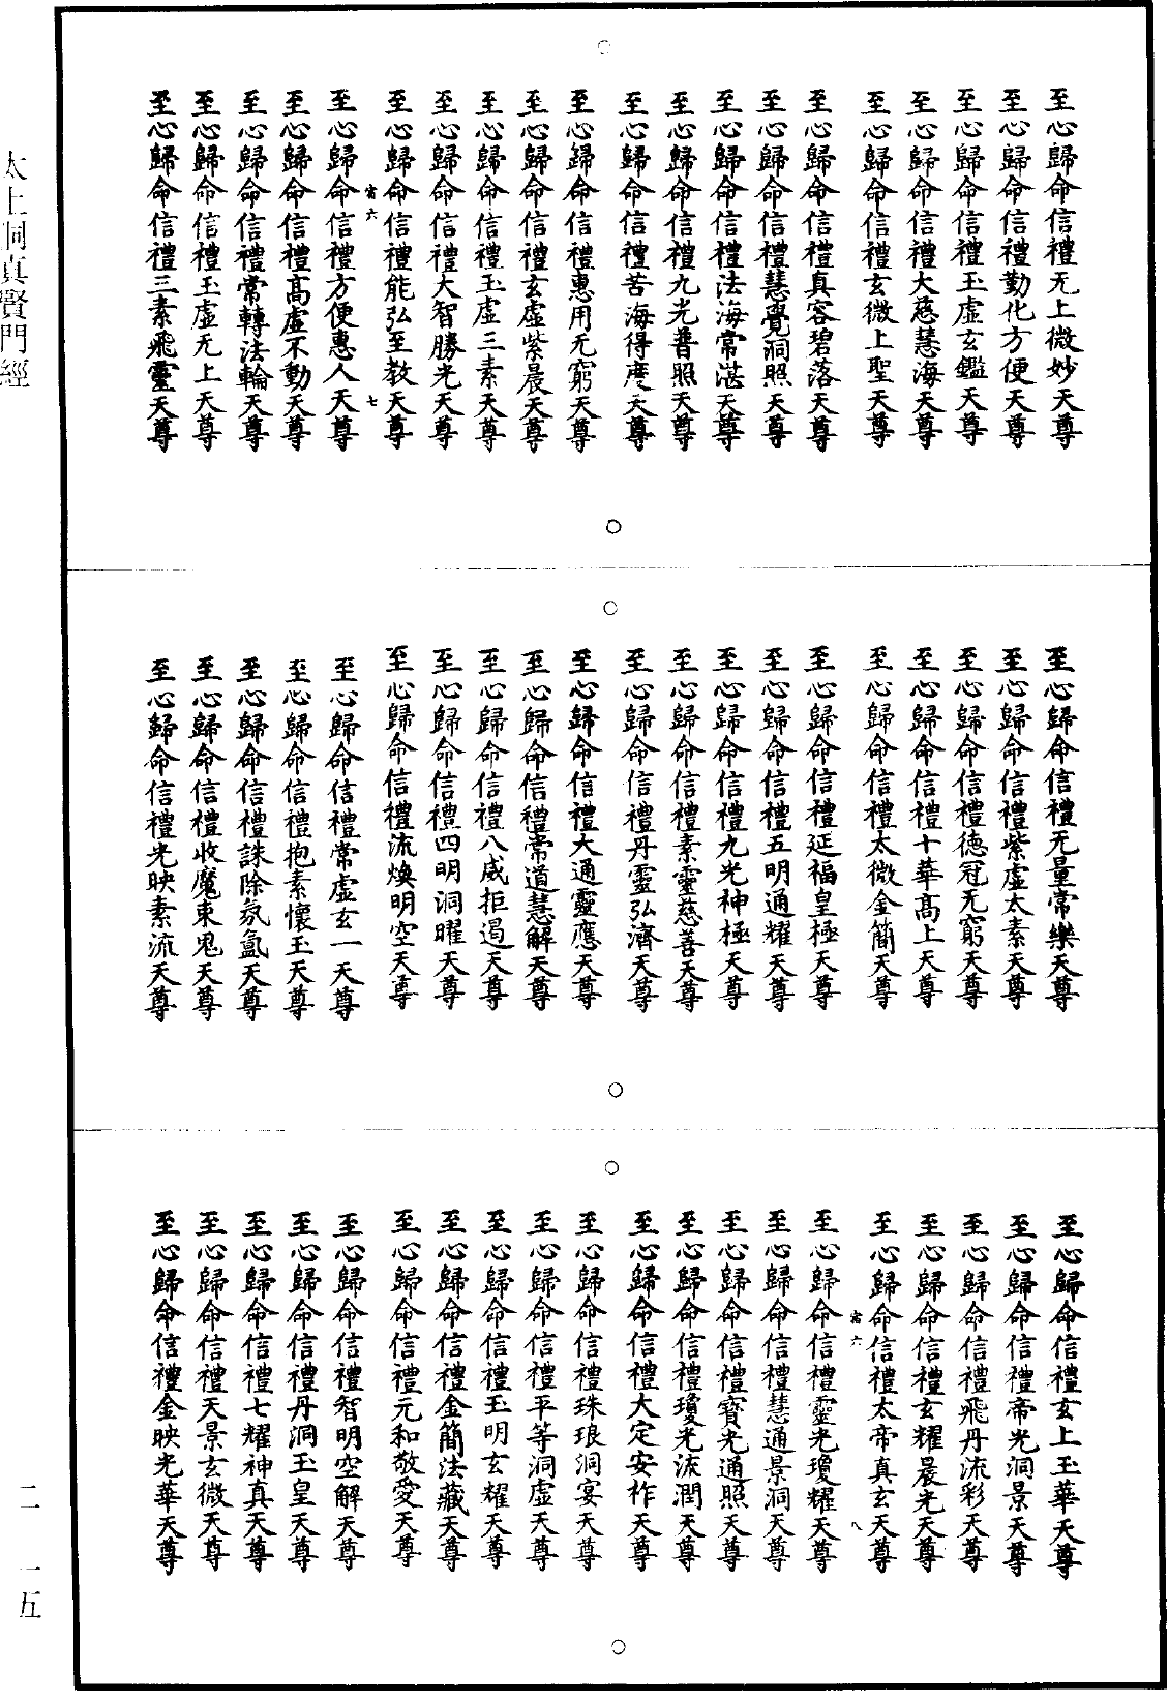 至心歸命信禮无上微妙天尊
至心歸命信禮勤化方便天尊
至心歸命信禮玉虛玄鑑天尊
至心歸命信禮大慈慧海天尊
至心歸命信禮玄微上聖天尊
至心歸命信禮真容碧落天尊
至心歸命信禮慧覺洞照天尊
至心歸命信禮法海常湛天尊
至心歸命信禮九光普照天尊
至心歸命信禮苦海得度天尊
至心歸命信禮惠用无窮天尊
至心歸命信禮玄虛紫晨天尊
至心歸命信禮玉虛三素天尊
至心歸命信禮大智勝光天尊
至心歸命信禮能弘至教天尊
六 七
至心歸命信禮方便惠人天尊
至心歸命信禮高虛不動天尊
至心歸命信禮常轉法輪天尊
至心歸命信禮玉虛无上天尊
至心歸命信禮三素飛靈天尊
至心歸命信禮无量常樂天尊
至心歸命信禮紫虛太素天尊
至心歸命信禮德冠无窮天尊
至心歸命信禮十華高上天尊
至心歸命信禮太微金簡天尊
至心歸命信禮延福皇極天尊
至心歸命信禮五明通耀天尊
至心歸命信禮九光神極天尊
至心歸命信禮素靈慈善天尊
至心歸命信禮丹靈弘濟天尊
至心歸命信禮大通靈應天尊
至心歸命信禮常道慧解天尊
至心歸命信禮八威拒遏天尊
至心歸命信禮四明洞曜天尊
至心歸命信禮流煥明空天尊
至心歸命信禮常虛玄一天尊
至心歸命信禮抱素懷玉天尊
至心歸命信禮誅除氛氳天尊
至心歸命信禮收魔束鬼天尊
至心歸命信禮光映素流天尊
至心歸命信禮玄上玉華天尊
至心歸命信禮帝光洞景天尊
至心歸命信禮飛丹流彩天尊
至心歸命信禮玄耀晨光天尊
至心歸命信禮太帝真玄天尊
六 八
至心歸命信禮靈光瓊耀天尊
至心歸命信禮慧通景洞天尊
至心歸命信禮寶光通照天尊
至心歸命信禮瓊光流潤天尊
至心歸命信禮大定安祚天尊
至心歸命信禮珠琅洞宴天尊
至心歸命信禮平等洞虛天尊
至心歸命信禮玉明玄耀天尊
至心歸命信禮金簡法藏天尊
至心歸命信禮元和敬愛天尊
至心歸命信禮智明空解天尊
至心歸命信禮丹洞玉皇天尊
至心歸命信禮七耀神真天尊
至心歸命信禮天景玄微天尊
至心歸命信禮金映光華天尊
太上洞真賢門經
二 一五